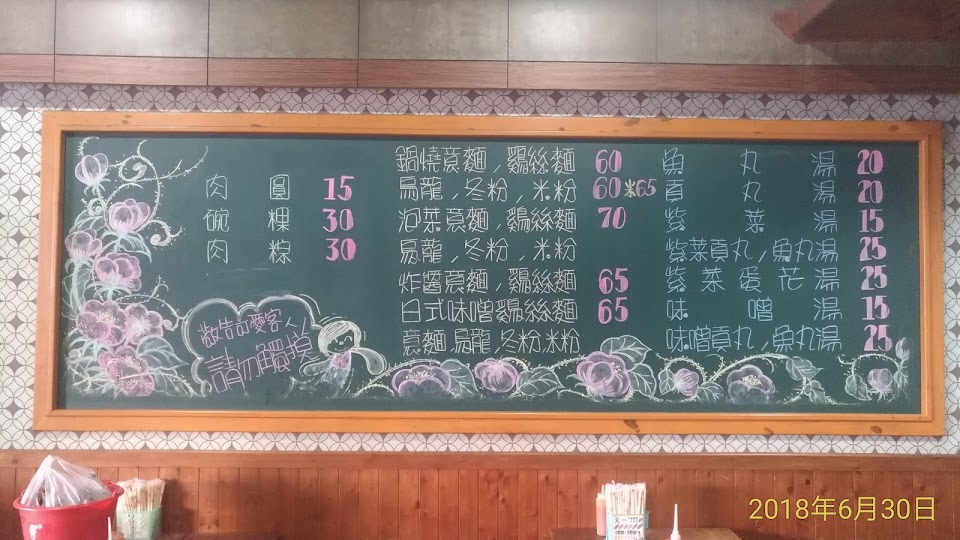 肉圓 15
碗粿 30
肉粽 30
敬告可愛客
請勿觸摸
鍋燒意麵,鷄絲麵 60
烏龍,冬粉,米粉 60米65
泡菜意麵,鷄絲麵 70
烏龍,冬粉,米粉
炸醬意麵,鷄絲麵 65
日式味噌鷄絲麵 65
意麵.烏龍.冬粉.米粉
魚丸湯 20
貢丸湯 20
紫菜湯 15
紫菜貢丸,魚丸湯 25
紫菜蛋花湯 25
味噌湯 15
味噌貢丸,魚丸湯 25
2018年6月30日